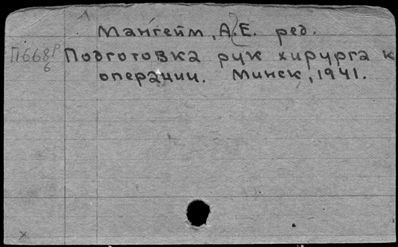 Мангейм, А.Е. ред.
П668р Подготовка рук хирурга к
б операции. Минск, 1941.